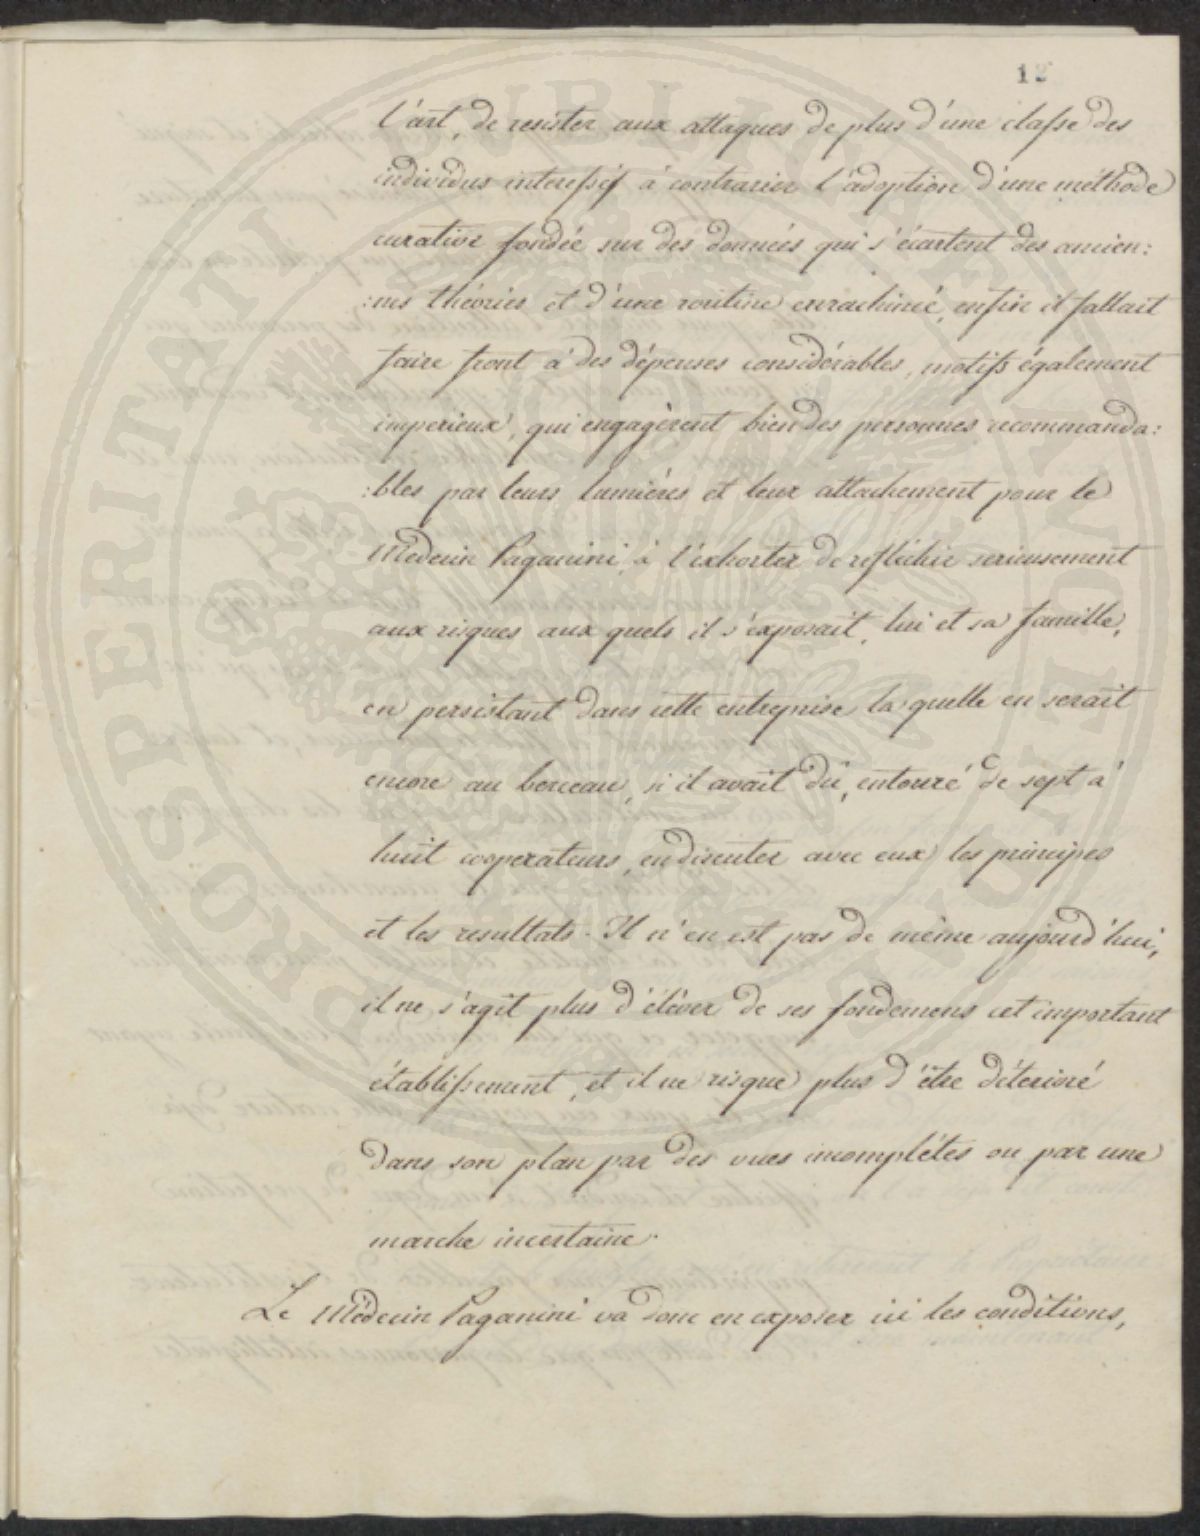 12
l'art, de resister aux attaques de plus d'une classe des
individus interessés à contrarier l'adoption d'une méthode
curative fondée sur des données qui s'écartent des ancien:
:nes théories et d'une routine enrachinée, enfin il fallait
faire front à des dépenses considérables, motifs également
imperieux, qui engagèrent bien des personnes recommanda:
:bles par leurs lumières et leur attachement pour le
Médecin Paganini, à l'exhorter de reflêchir serieusement
aux risques aux quels il s'exposait, lui et sa famille,
en persistant dans cette entreprise la quelle en serait
encore au berceau, si il avait dû, entouré de sept à
huit cooperateurs, en discuter avec eux les principes
et les resultats. Il n'en est pas de même aujourd'hui,
il ne s'agit plus d'éléver de ses fondemens cet important
établissement, et il ne risque plus d'être déterioré
dans son plan par des vues incomplétes ou par une
marche incertaine.
Le Médecin Paganini va donc en exposer ici les conditions,
PROSPERITATI PVBLICAE